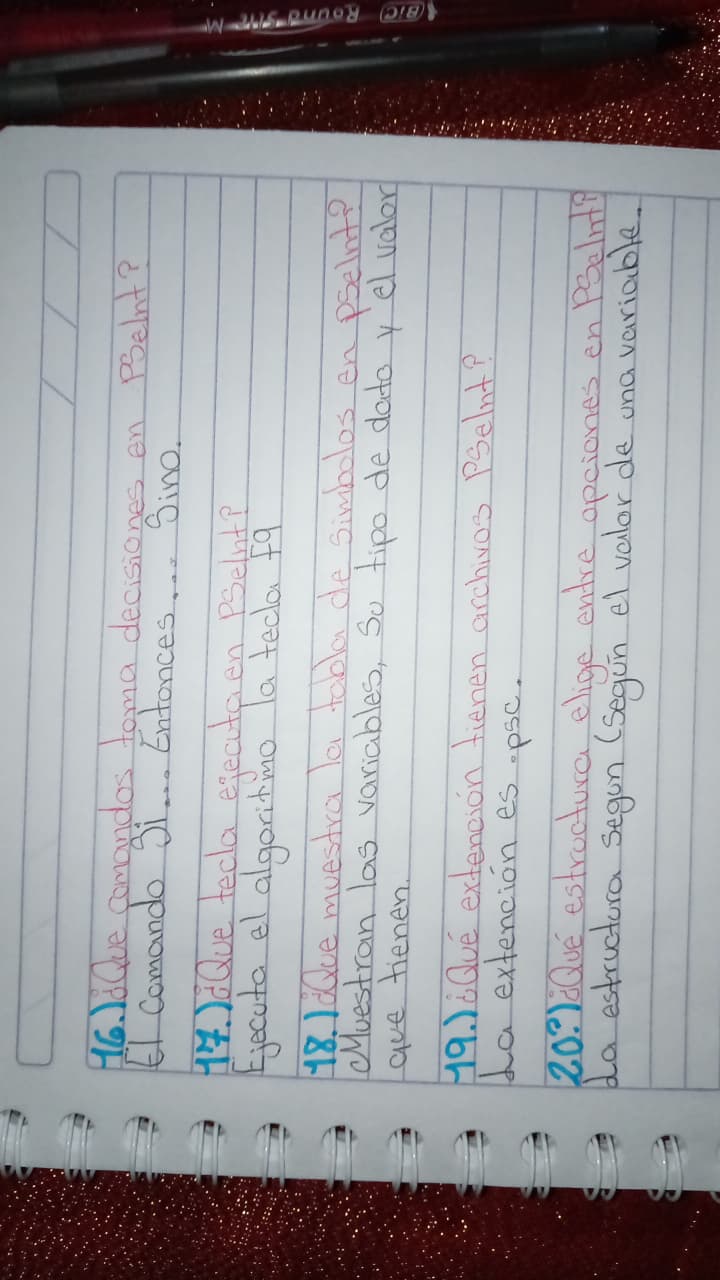 BIC Round Stic M
16.) ¿Que comandos toma decisiones en PSeInt?
El comando Si... Entonces... Sino.
17.) ¿Que tecla ejecuta en PSeInt?
Ejecuta el algoritmo la tecla F9
18.) ¿Que muestra la tabla de simbolos en PSeInt?
Muestran las variables, su tipo de dato y el valor
que tienen.
19.) ¿Qué extención tienen archivos PSeInt?
La extención es .psc.
20.) ¿Qué estructura elige entre opciones en PSeInt?
La estructura segun (según el valor de una variable.